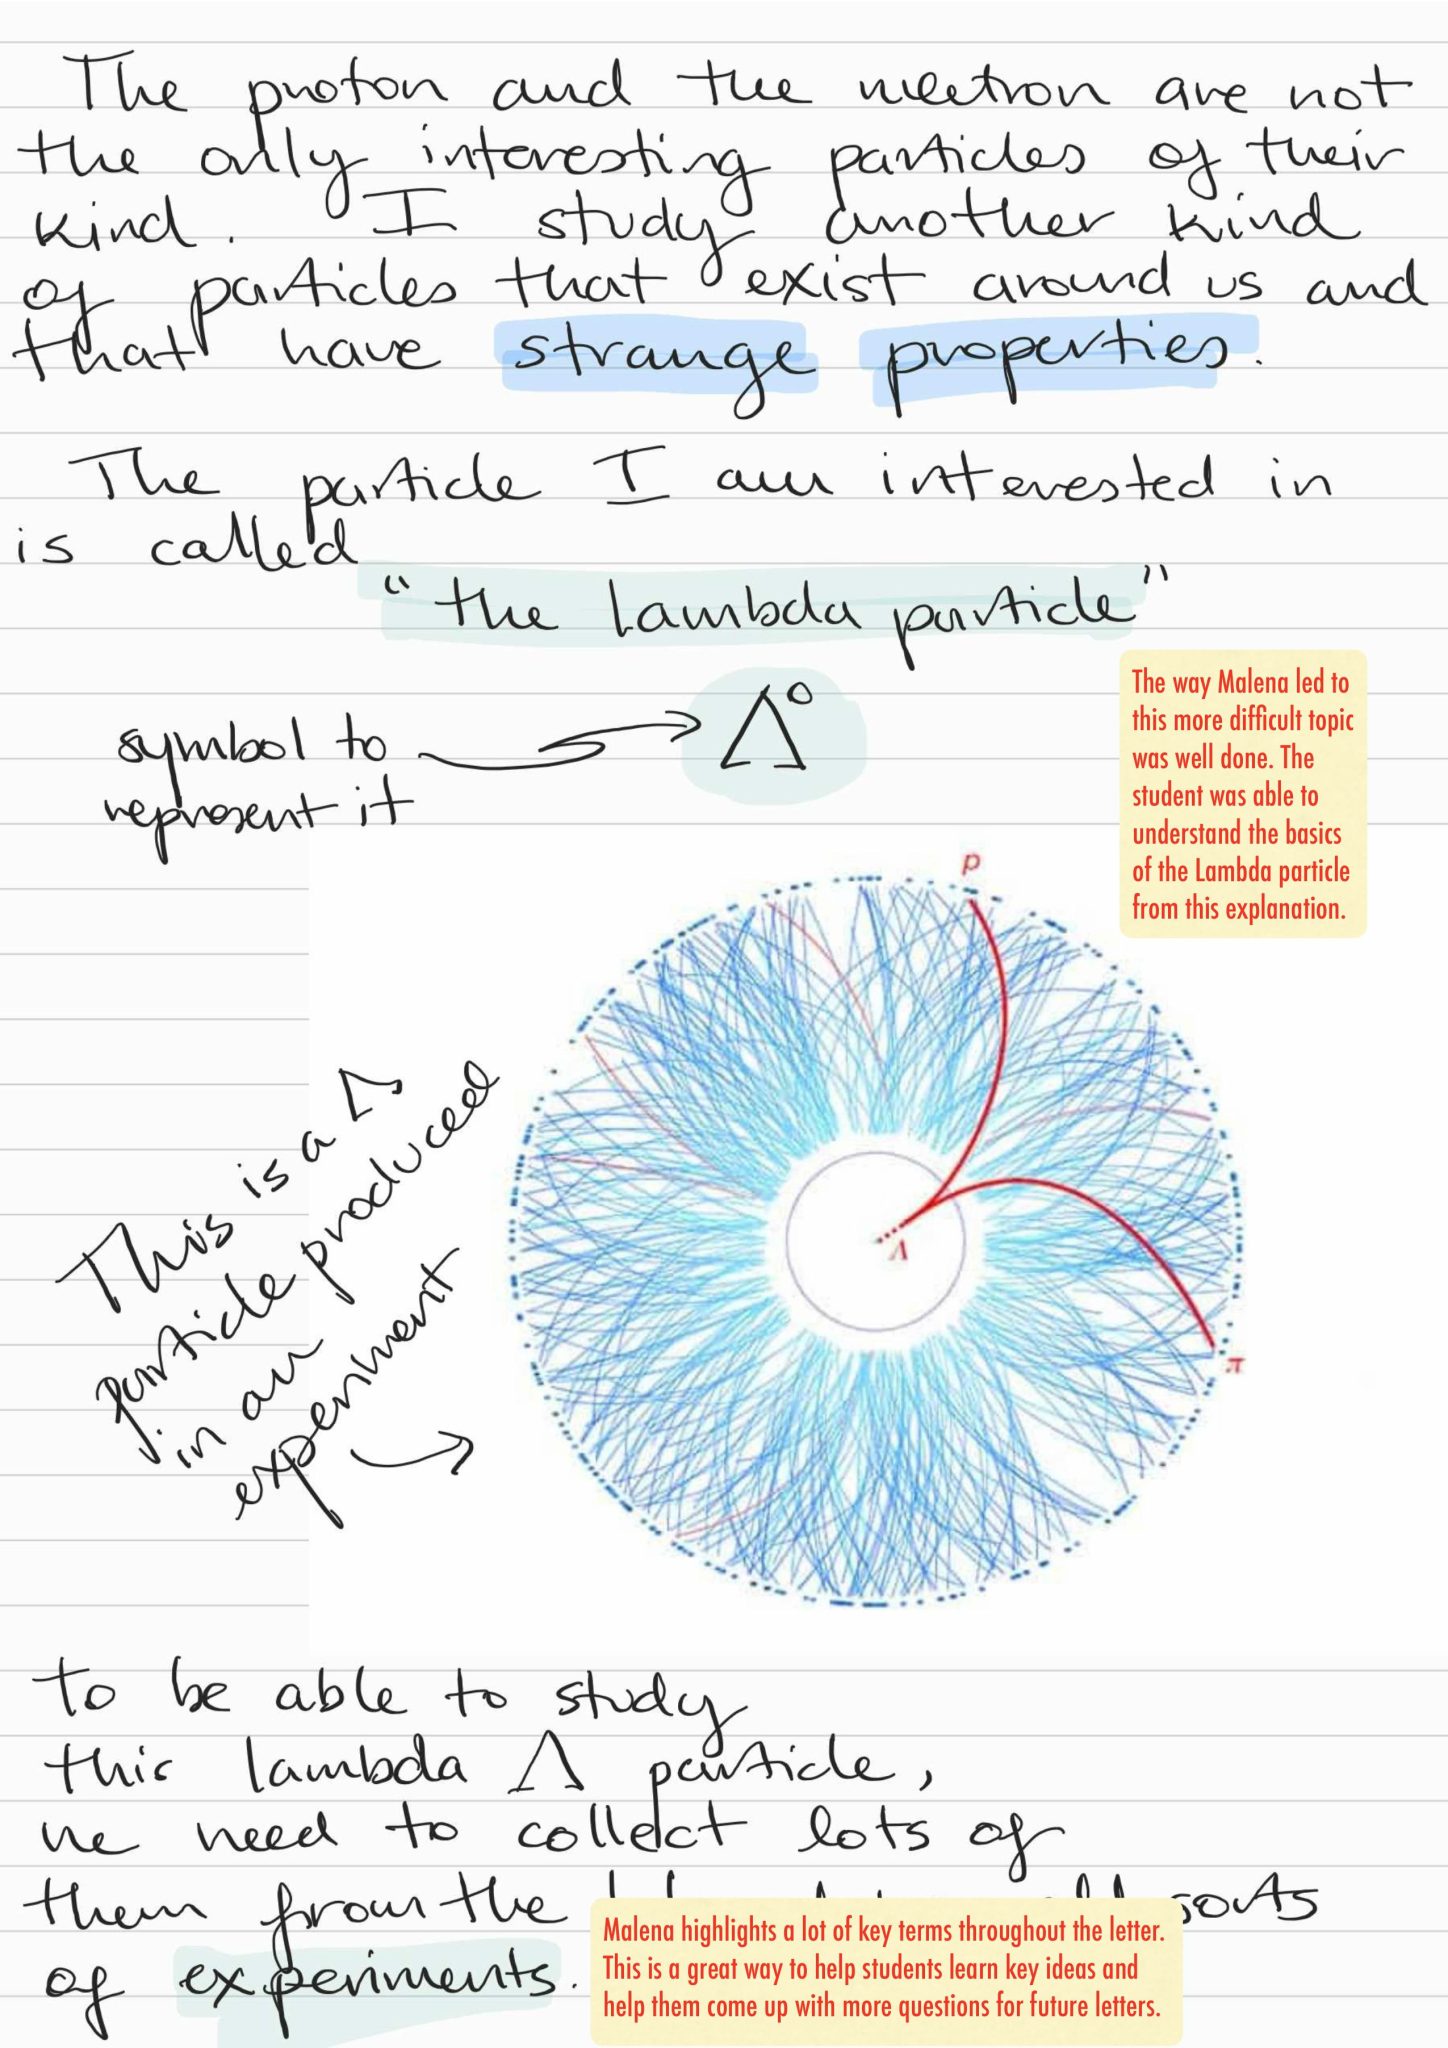 The proton and the neutron are not
the only interesting particles of their
kind. I study another kind
of particles that exist around us and
that have strange properties.
The particle I am interested in
is called
"the Lambda particle"
The way Malena led to
this more difficult topic
was well done. The
student was able to
understand the basics
of the Lambda particle
from this explanation.
symbol to
represent it
Λ⁰
p
Λ
π
This is a Λ
particle produced
in an
experiment
to be able to study
this lambda Λ particle,
we need to collect lots of
them from the sorts
of experiments.
Malena highlights a lot of key terms throughout the letter.
This is a great way to help students learn key ideas and
help them come up with more questions for future letters.